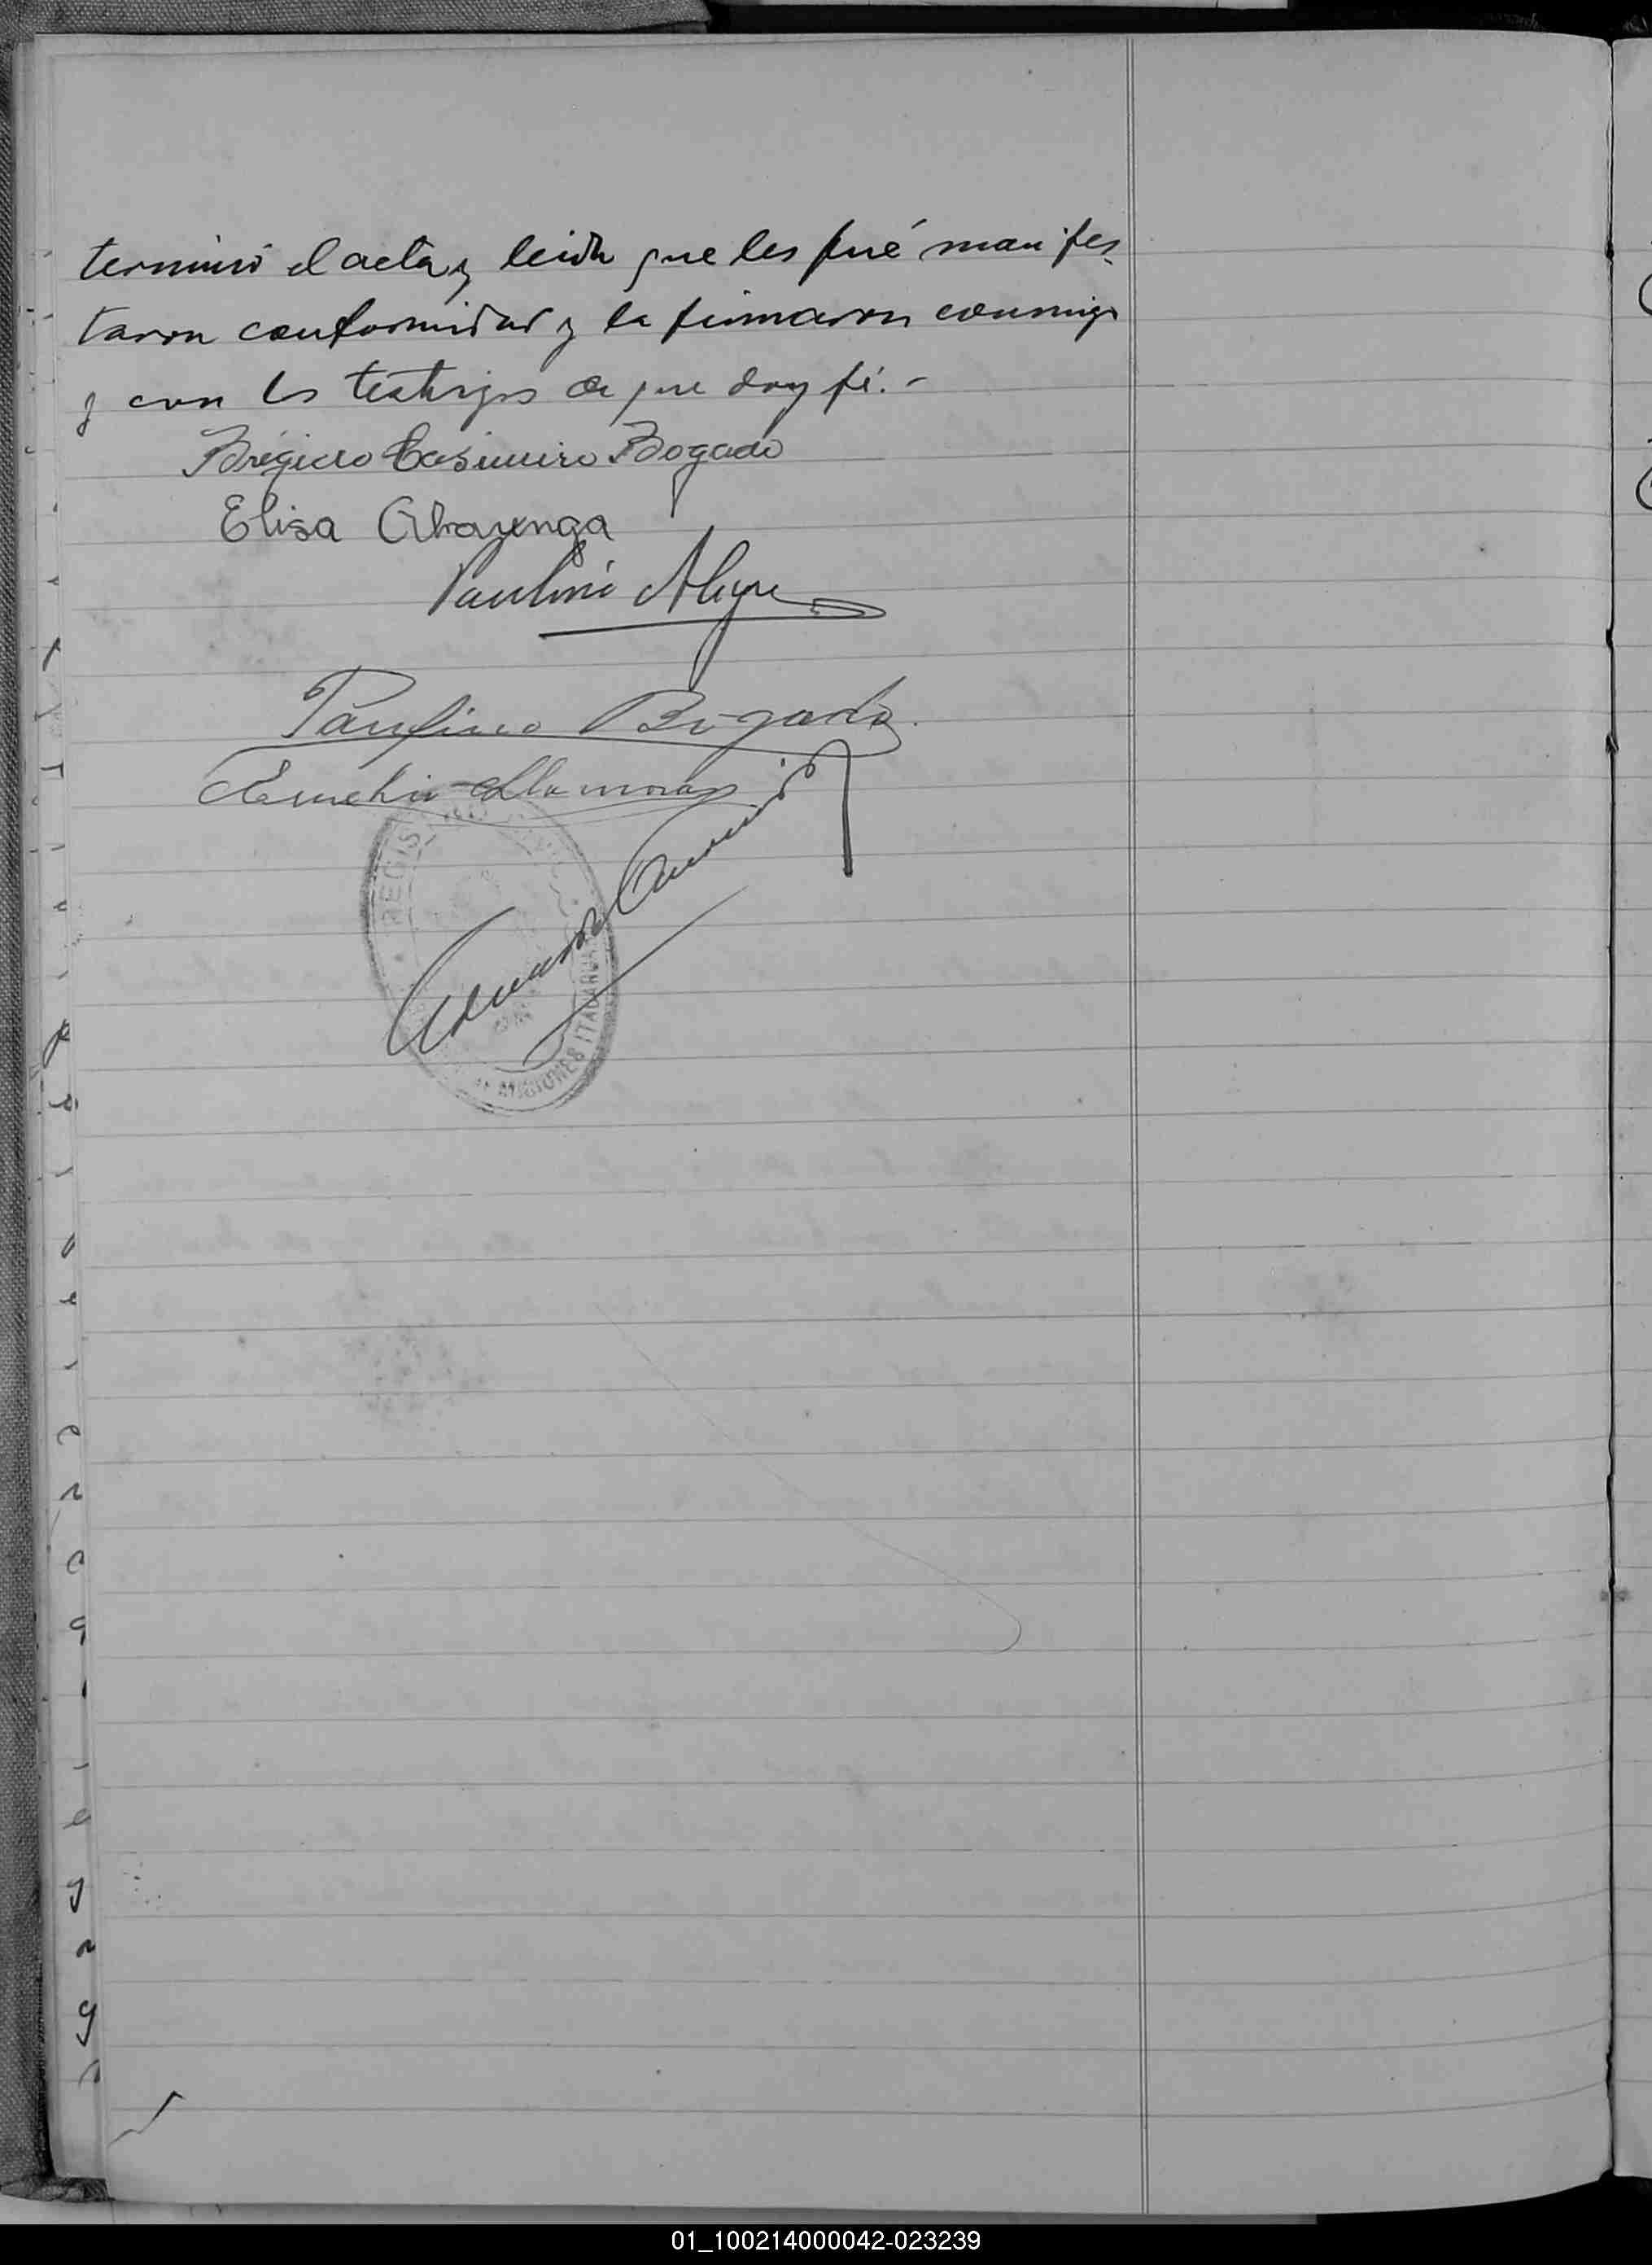 terminó el acta y leida que les fué manifes-
taron conformidad y la firmaron conmigo
y con los testigos de que doy fé.-
Casimiro Bogado
Elisa
Paulino Alegre
Paulino Bogado.
REGIS
MISIONES ITACARUARE
01_100214000042-023239